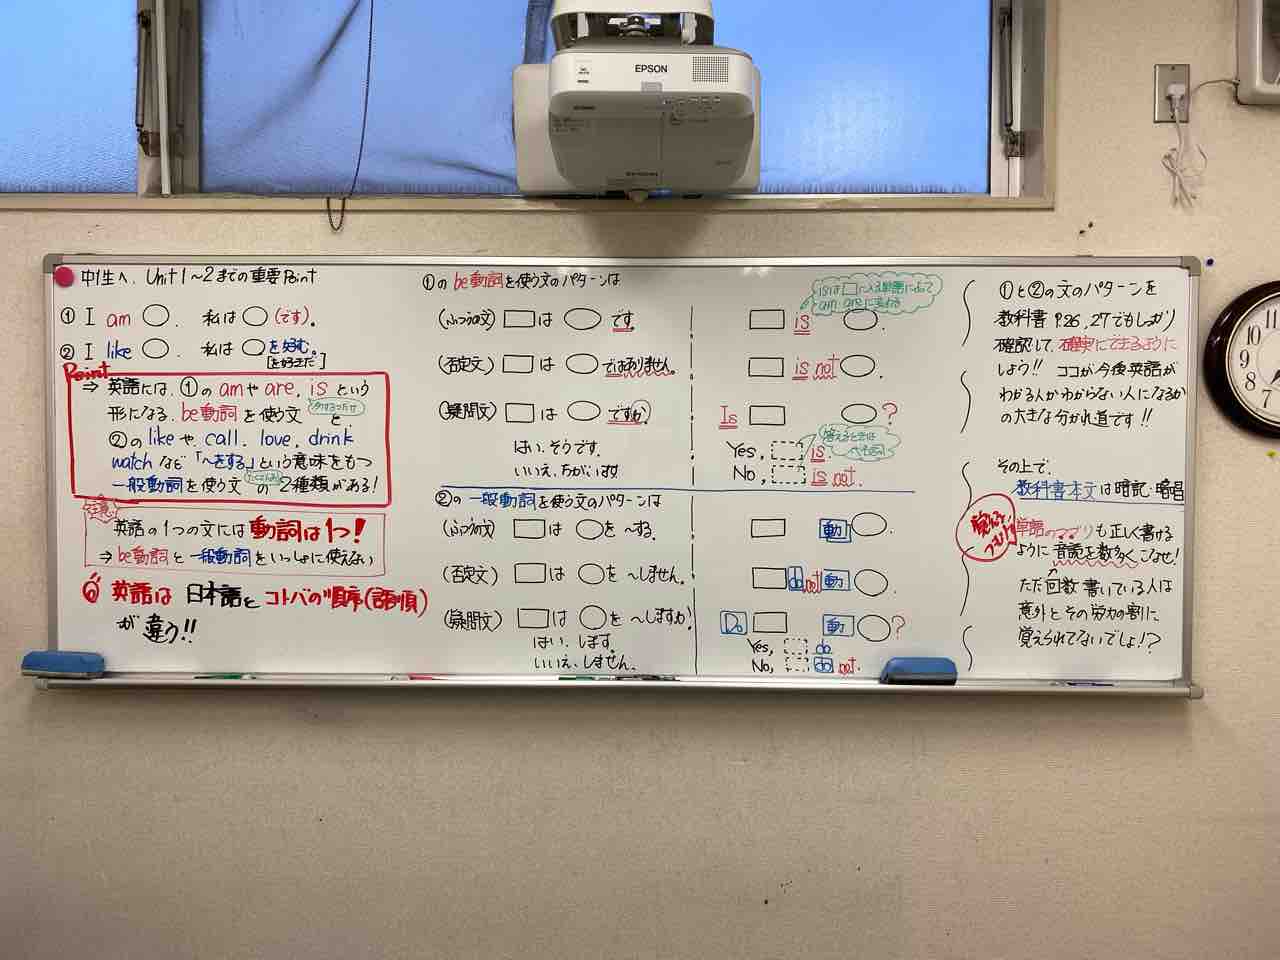 EPSON
中1生へ、Unit 1〜2までの重要Point
① I am ◯. 私は ◯ (です)。
② I like ◯. 私は ◯ を好む。
[を好きだ]
Point
⇒ 英語には、①のamや are, is という
形になる、be動詞を使う文と、
②のlikeや、call, love, drink
watchなど「〜をする」という意味をもつ
一般動詞を使う文の2種類がある!
注意
英語の1つの文には動詞は1つ!
⇒ be動詞と一般動詞をいっしょに使えない
英語は日本語とコトバの順序(語順)
が違う!!
①の be動詞を使う文のパターンは
(ふつうの文) □は ◯ です。
(否定文) □は ◯ ではありません。
(疑問文) □は ◯ ですか。
はい、そうです。
いいえ、ちがいます
②の 一般動詞を使う文のパターンは
(ふつうの文) □は ◯を 〜する。
(否定文) □は ◯を 〜しません。
(疑問文) □は ◯を 〜しますか?
はい、します。
いいえ、しません。
isは□に入る単語によって
am areに変わる
□ is ◯.
□ is not ◯.
Is □ ◯?
答えるときは
Yes, □ is.
No, □ is not.
□ 動 ◯.
□ do not 動 ◯.
Do □ 動 ◯?
Yes, □ do
No, □ do not.
①と②の文のパターンを
教科書 P.26, 27でもしっかり
確認して、確実にできるように
しよう!! ココが今後英語が
わかる人かわからない人になるか
の大きな分かれ道です!!
その上で、
教科書本文は暗記・暗唱
覚える
つもりで
単語のつづりも正しく書ける
ように音読を数多くこなせ!
ただ回数書いている人は
意外とその労力の割に
覚えられてないでしょ!?
12
11
10
9
8
7
6